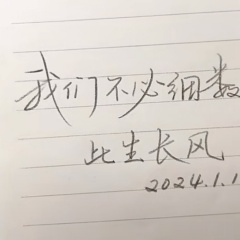 我们不必细数
此生长风
2024.1.1